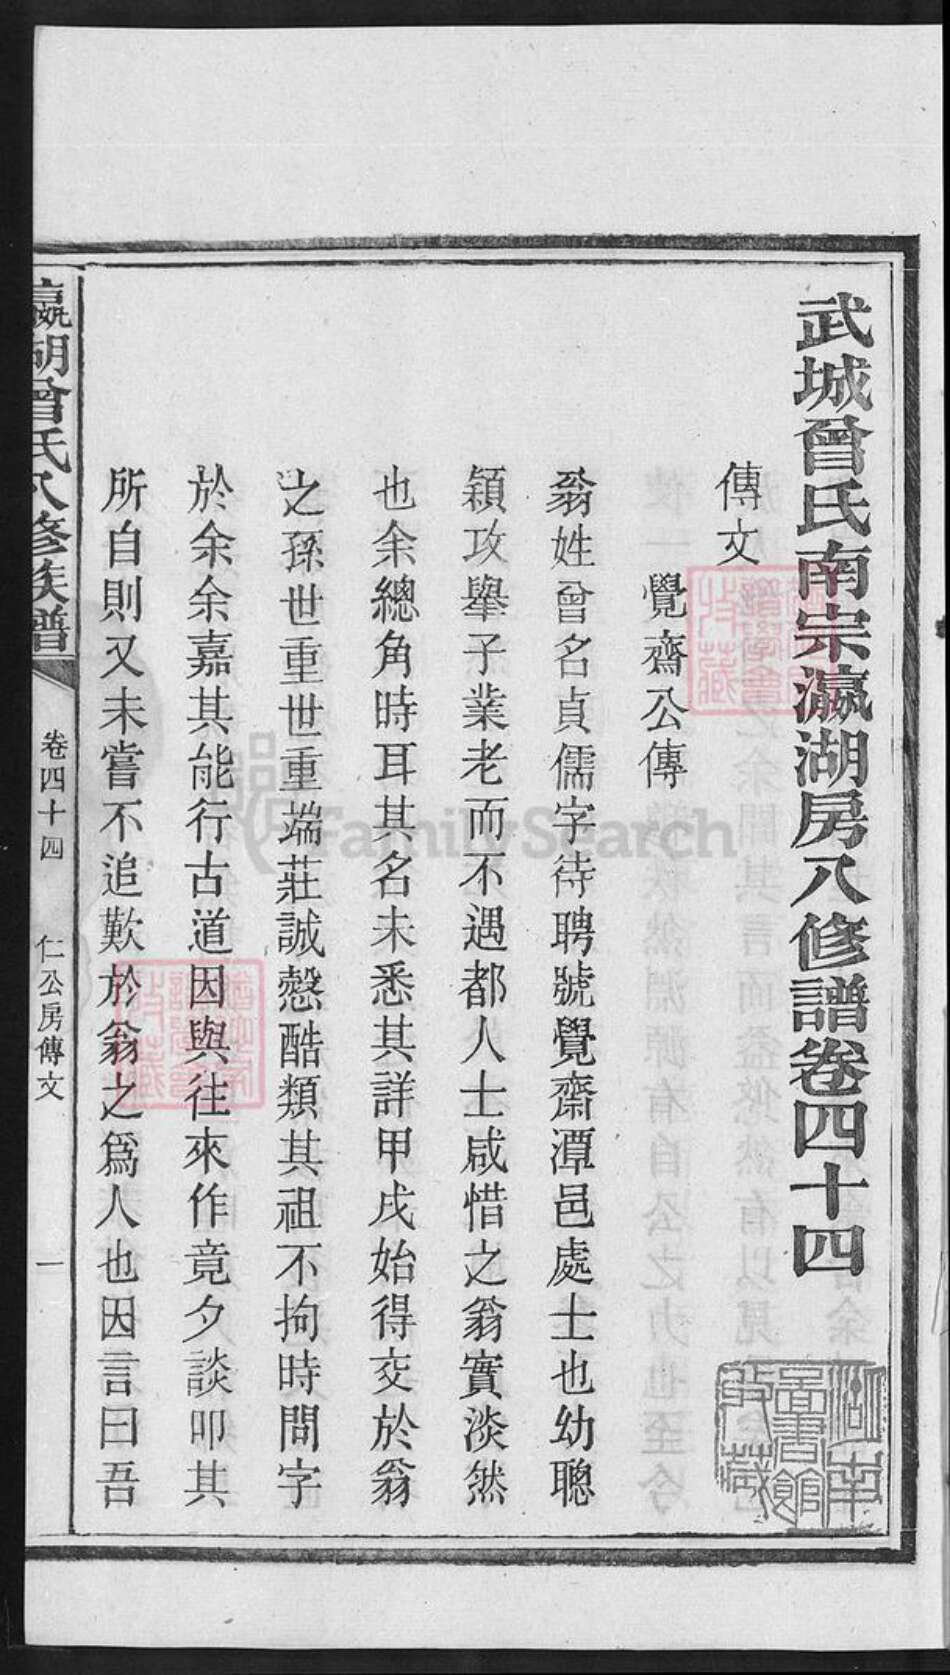 武城曾氏南宗瀛湖房八修譜卷四十四
傳文
覺齋公傳
翁姓曾名貞儒字待聘號覺齋潭邑處士也幼聰
穎攻舉子業老而不遇都人士咸惜之翁實淡然
也余總角時耳其名未悉其詳甲戌始得交於翁
之孫世重世重端莊誠慤酷類其祖不拘時問字
於余余嘉其能行古道因與往來作竟夕談叩其
所自則又未嘗不追歎於翁之爲人也因言曰吾
瀛湖曾氏八修族譜
卷四十四
仁公房傳文
一
湖南圖書館收藏
FamilySearch